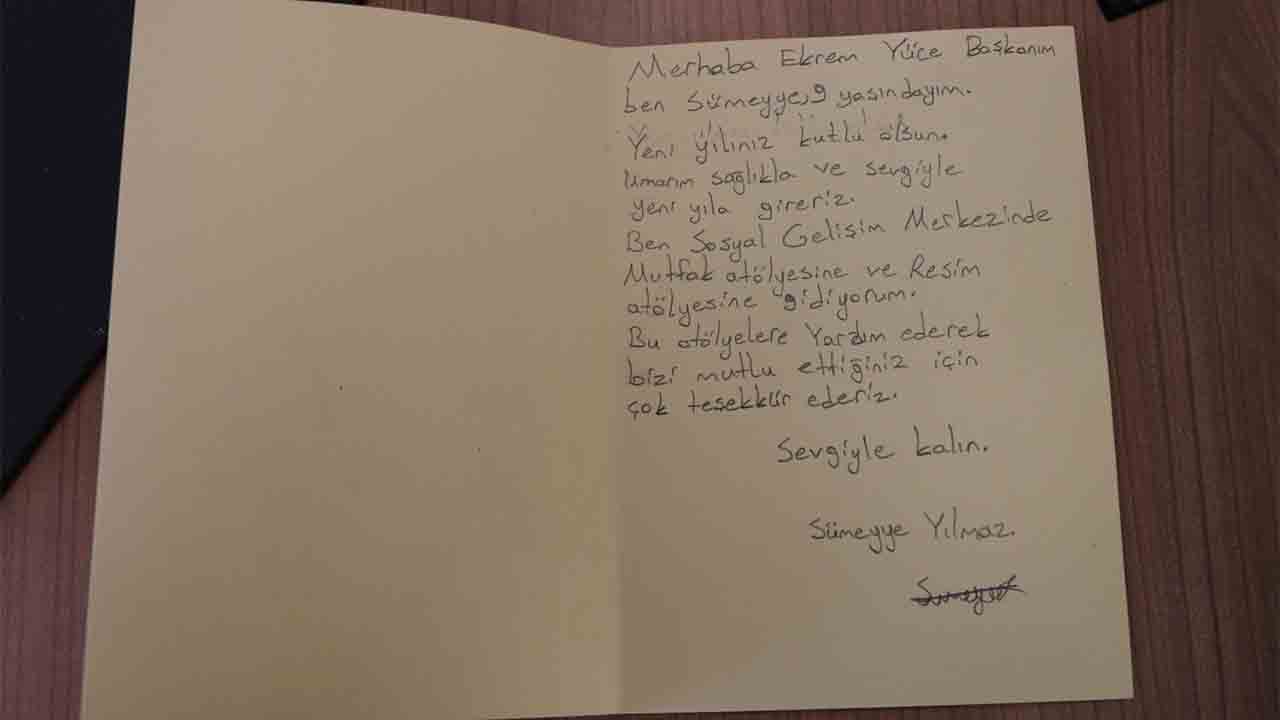 Merhaba Ekrem Yüce Başkanım
ben Sümeyye,9 yaşındayım.
Yeni yılınız kutlu olsun.
Umarım sağlıkla ve sevgiyle
yeni yıla gireriz.
Ben Sosyal Gelişim Merkezinde
Mutfak atölyesine ve Resim
atölyesine gidiyorum.
Bu atölyelere Yardım ederek
bizi mutlu ettiğiniz için
çok teşekkür ederiz.
Sevgiyle kalın.
Sümeyye Yılmaz.